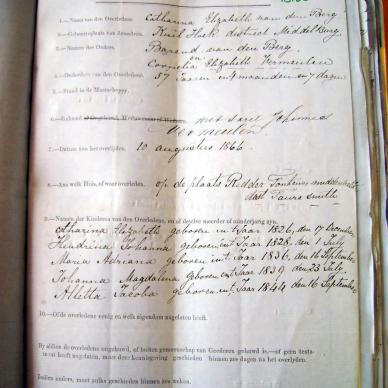 1.—Naam van den Overledene. Catharina Elizabeth van den Berg
2.—Geboorteplaats van denzelven. Kuil Hoek district Middelburg
3.—Namen der Ouders. Barend van den Berg
en
Cornelia Elizabeth Vermeulen
4.—Ouderdom van den Overledene. 57 Jaaren en 4 maanden en 7 dagen
5.—Stand in de Maatschappy.
6.—Gehuwd met Carel Johannes
Vermeulen
7.—Datum van het overlijden. 10 augustus 1866.
8.—Aan welk Huis, of waar overleden. op de plaats Ridder Fontein
dist Fauresmith
9.—Namen der Kinderen van den Overledene, en of dezelve meerder of minderjarig zyn.
Catharina Elizabeth geboren int Jaar 1826, den 17 December
Hendrina Johanna geboren int Jaar 1828 den 1 July
Maria Adriana geboren int Jaar 1836, den 16 September
Johanna Magdalena geboren int Jaar 1839 den 23 July
Alletta Jacoba geboren int Jaar 1844 den 16 September
10.—Of de overledene eenig en welk eigendom nagelaten heeft.
By aldien de overledene ongehuwd, of buiten gemeenschap van Goederen gehuwd is,—of geen testament
heeft nagelaten, moet deze kennisgeving geschieden binnen zes dagen na het overlyden.
Indien anders, moet zulks geschieden binnen zes weken.